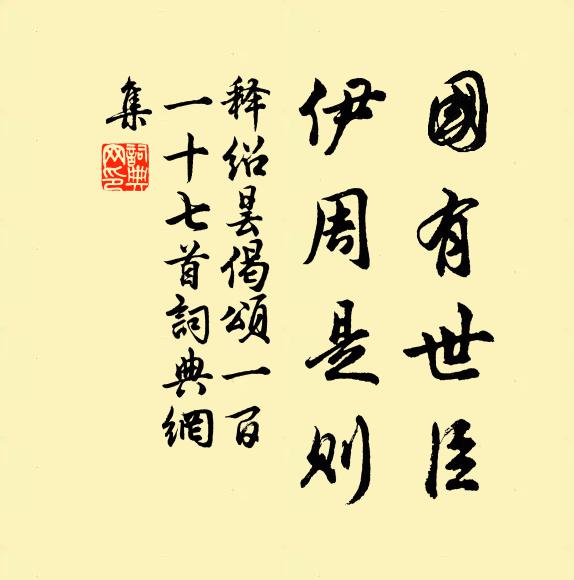 國有世臣
伊周是則
释绍昙偈頌一百
一十七首詞典網
集
詞典網印